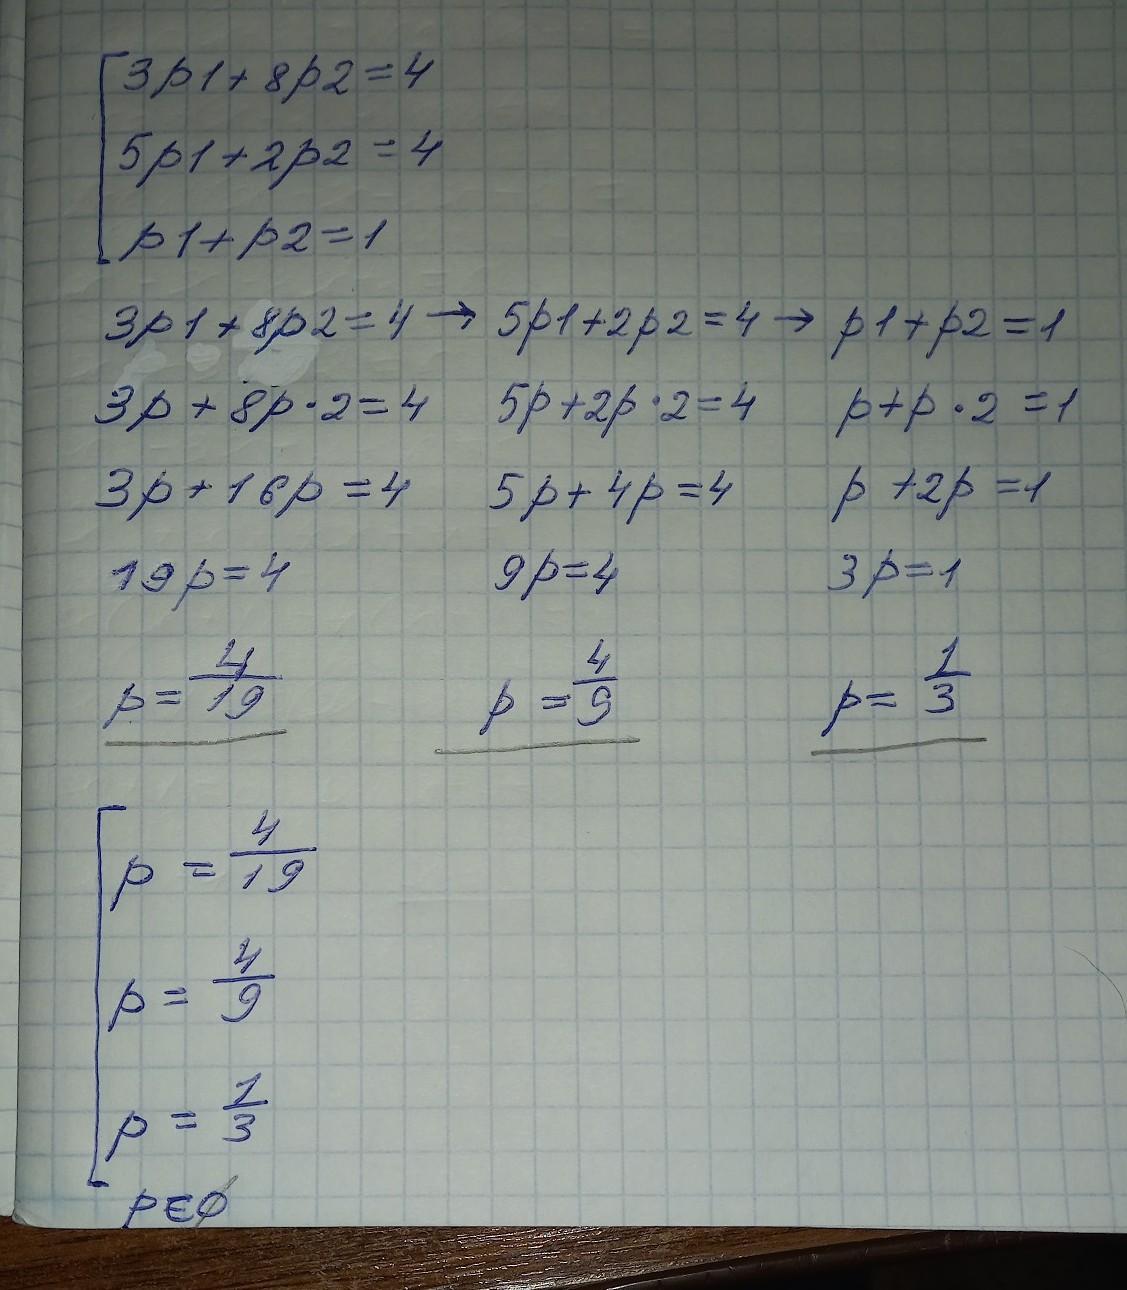 3p1+8p2=4
5p1+2p2=4
p1+p2=1
3p1+8p2=4→5p1+2p2=4→p1+p2=1
3p+8p·2=4 5p+2p·2=4 p+p·2=1
3p+16p=4 5p+4p=4 p+2p=1
19p=4 9p=4 3p=1
p=4/19 p=4/9 p=1/3
p=4/19
p=4/9
p=1/3
p∈∅